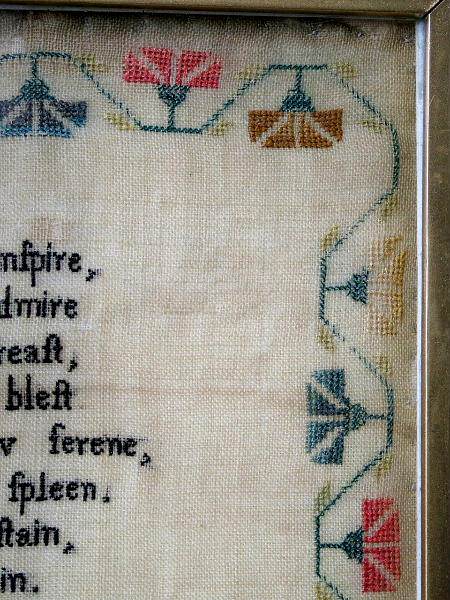 mſpire,
dmire
reaſt,
bleſt
v ſerene,
ſpleen.
ſtain,
in.